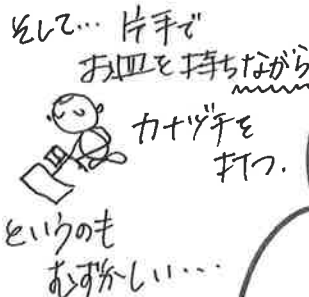 そして… 片手で
お皿を持ちながら
カナヅチを
打つ.
というのも
むずかしい…